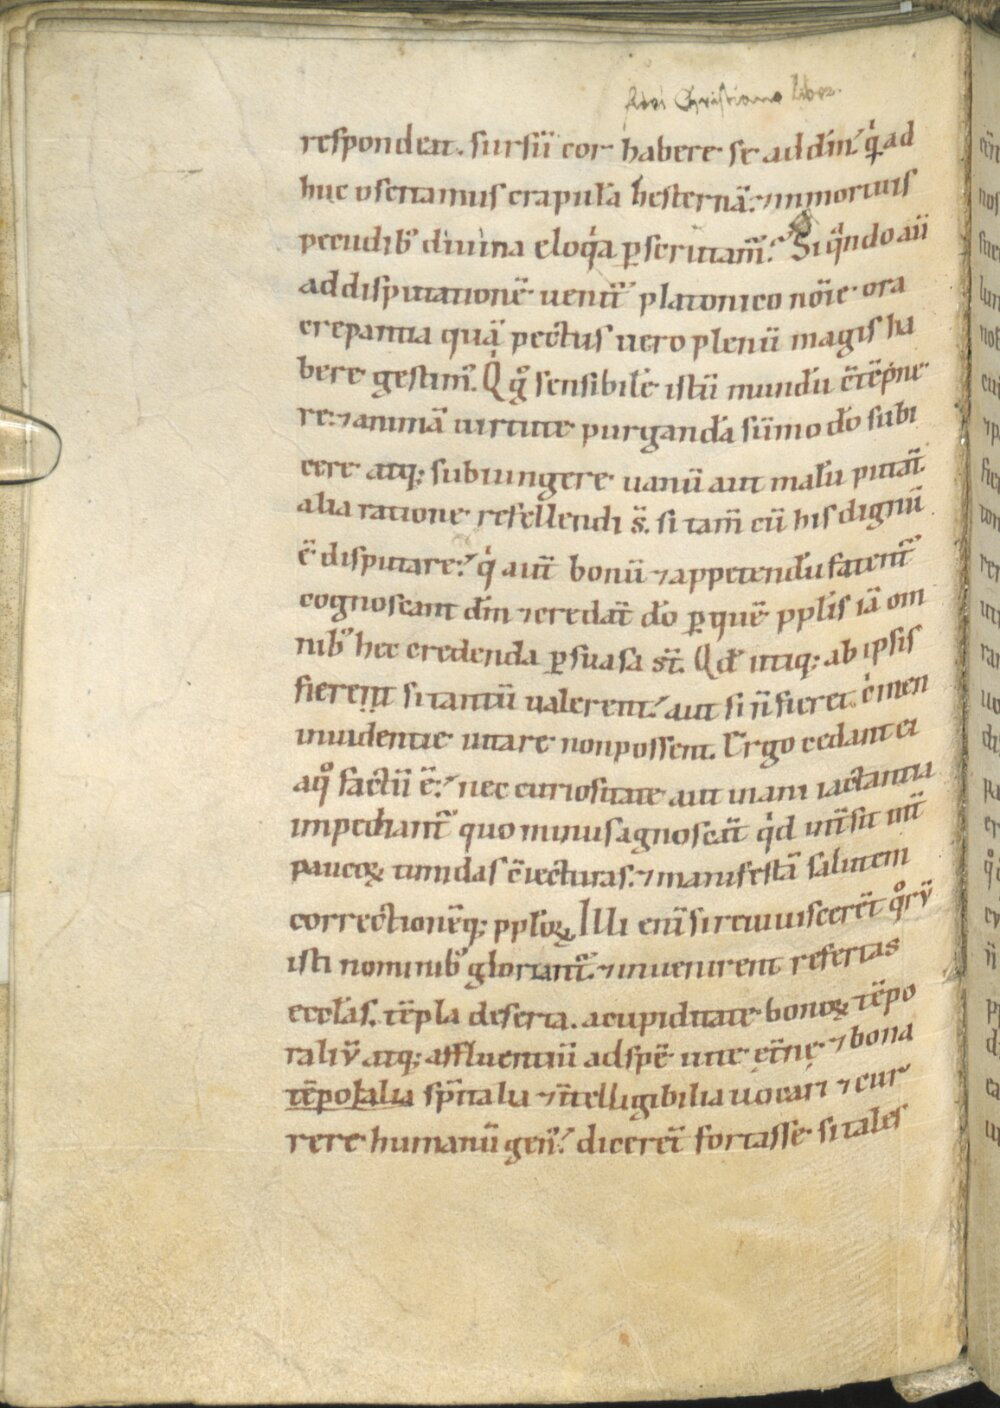 respondent. sursū cor habere se ad dn̄m. qͥ ad
huc oscitamus crapula hesternā. ⁊ in mortuis
pecudibꝰ diuina eloqͣa ꝑscrutam̄. Si qͣndo aū
ad disputationē uenit̄ platonico noīe ora
crepantia quā pectus uero plenū magis ha
bere gestim̄. Qͥ gͦ sensibile istū mundū ꝯtēpne
re. ⁊ animā uirtute purgandā sūmo do subi
cere atq; subiungere uanū aut malū putat̄.
alia ratione refellendi s̄. si tam̄ cū his dignū
ē disputare. qͥ aut̄ bonū ⁊ appetendū fatent̄
cognoscant dn̄m ⁊ credat̄ do ꝑ quē ppłis iā om
nibꝰ hec credenda ꝑsuasa st̄. Qd utiq; ab ipsis
fieret si tantū ualerent. aut si n̄ fieret cͥmen
inuidentie uitare non possent. Ergo cedant ei
a qͦ factū ē. nec curiositate aut inani iactantia
impediant̄ quo minus agnoscāt qͥd int̄sit int̄
paucoꝝ timidas ꝯiecturas. ⁊ manifestā salutem
correctionēq; ppłoꝝ. Illi enī si reuiuiscerēt qͦrū
isti nominibꝰ gloriant̄. ⁊ inuenirent refertas
eccłas. tēpla deserta. a cupiditate bonoꝝ tēpo
raliū atq; affluentiū ad spē uite et̄nę ⁊ bona
tēporalia sp̄italia ⁊ intelligibilia uocari ⁊ cur
rere humanū gen̄. dicerēt fortasse si tales